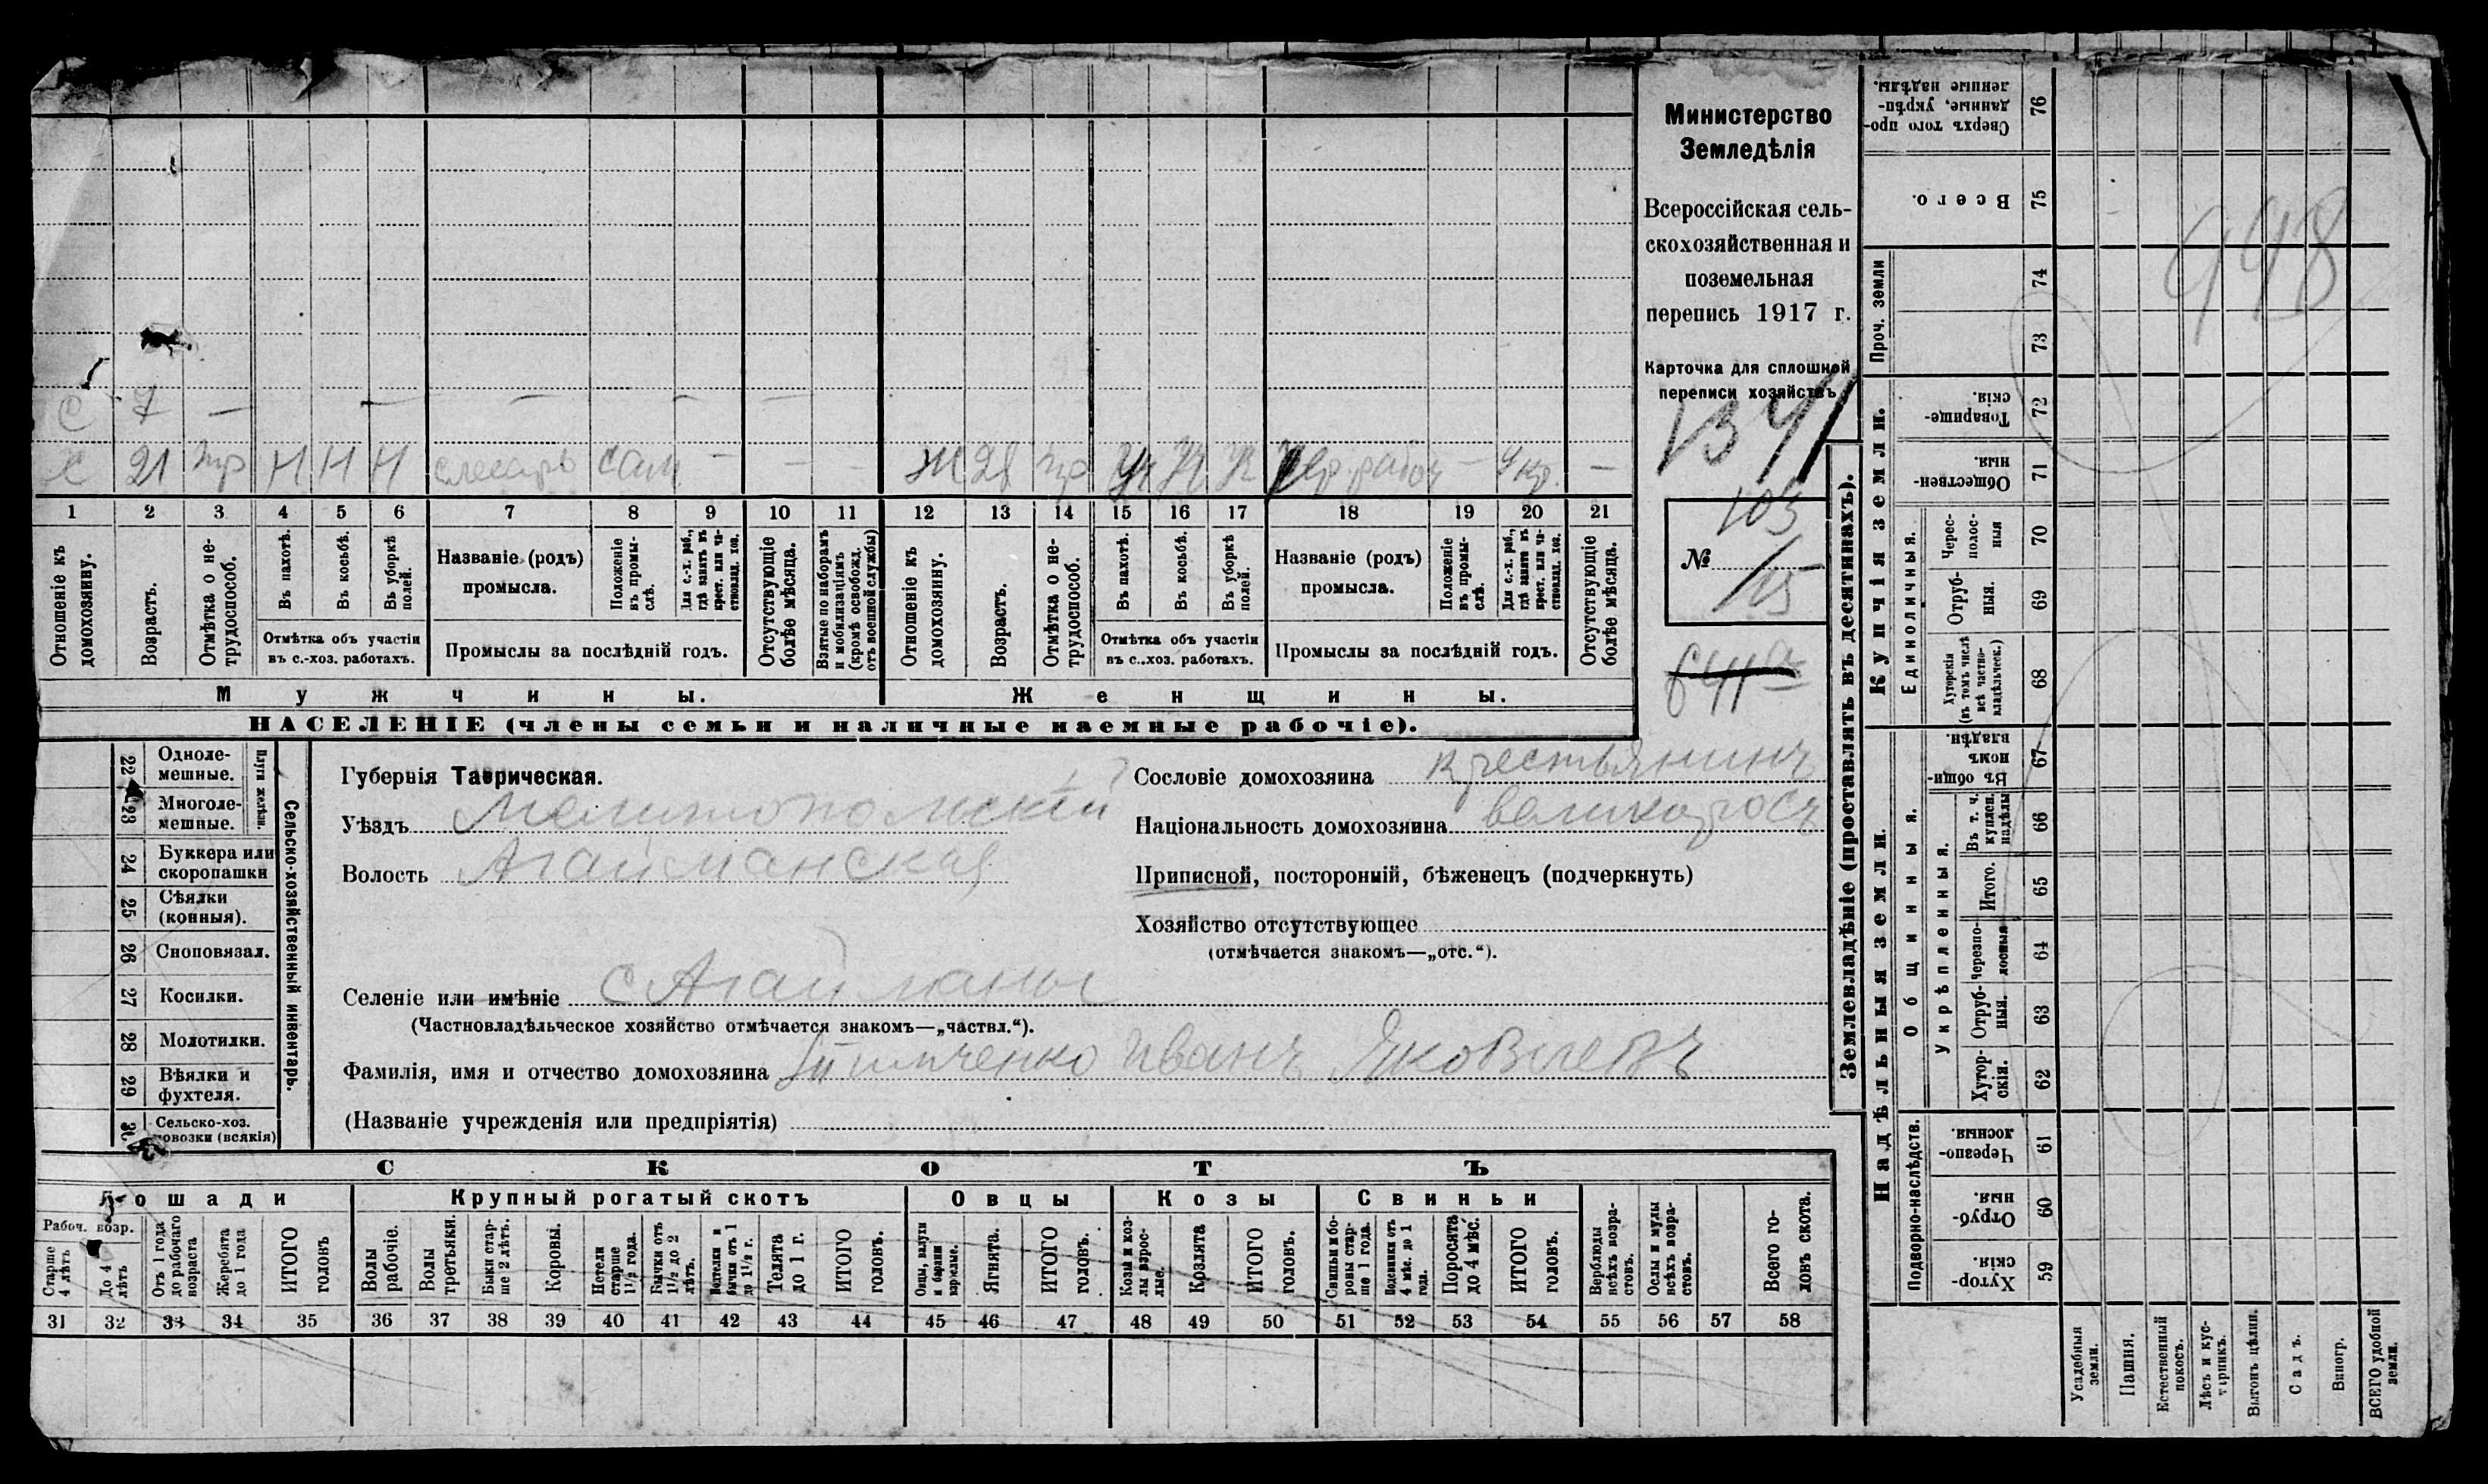 Министерство
Земледѣлія
Всероссійская сель-
скохозяйственная и
поземельная
перепись 1917 г.
Карточка для сплошной
переписи хозяйствъ
1341
№ 105
/15
С 7 — — — — —
С 21 тр Н Н Н слесарь сам — — — Ж 28 тр Уч Уч рабоч — —
1 2 3 4 5 6 7 8 9 10 11 12 13 14 15 16 17 18 19 20 21
Отношеніе къ домохозяину.
Возрастъ.
Отмѣтка о не-трудоспособ.
Въ пахотѣ.
Въ косьбѣ.
Въ уборкѣ полей.
Отмѣтка объ участіи
въ с.-хоз. работахъ.
Названіе (родъ)
промысла.
Положеніе въ промы-слѣ.
Для с.-х. раб., гдѣ занятъ въ крест. или ча-стновлад. хоз.
Промыслы за послѣдній годъ.
Отсутствующіе болѣе мѣсяца.
Взятые по наборамъ и мобилизаціямъ (кромѣ освобожд. отъ военной службы)
Отношеніе къ домохозяину.
Возрастъ.
Отмѣтка о не-трудоспособ.
Въ пахотѣ.
Въ косьбѣ.
Въ уборкѣ полей.
Отмѣтка объ участіи
въ с..хоз. работахъ.
Названіе (родъ)
промысла.
Положеніе въ промы-слѣ.
Для с.-х. раб., гдѣ занятъ въ крест. или ча-стновлад. хоз.
Промыслы за послѣдній годъ.
Отсутствующіе болѣе мѣсяца.
Мужчины.
Женщины.
НАСЕЛЕНІЕ (члены семьи и наличные наемные рабочіе).
22 Одноле-мешные.
23 Многоле-мешные.
Плуги желѣзн.
24 Буккера или скоропашки
25 Сѣялки (конныя).
26 Сноповязал.
27 Косилки.
28 Молотилки.
29 Вѣялки и фухтеля.
30 Сельско-хоз. повозки (всякія)
Сельско-хозяйственный инвентарь.
Губернія Таврическая.
Уѣздъ Мелитопольскій
Волость Агайманская
Сословіе домохозяина крестьянинъ
Національность домохозяина великоросъ
Приписной, посторонній, бѣженецъ (подчеркнуть)
Хозяйство отсутствующее
(отмѣчается знакомъ—„отс.“).
Селеніе или имѣніе с Агайманы
(Частновладѣльческое хозяйство отмѣчается знакомъ—„частвл.“).
Фамилія, имя и отчество домохозяина Иванъ Яковлевъ
(Названіе учрежденія или предпріятія)
СКОТЪ
Лошади
Крупный рогатый скотъ
Овцы
Козы
Свиньи
Рабоч. возр.
Старше 4 лѣтъ
До 4 лѣтъ
Отъ 1 года до рабочаго возраста
Жеребята до 1 года
ИТОГО головъ
Волы рабочіе.
Волы третьяки.
Быки стар-ше 2 лѣтъ.
Коровы.
Нетели старше 1½ года.
Бычки отъ 1½ до 2 лѣтъ.
Нетелки и бычки отъ 1 до 1½ г.
Телята до 1 г.
ИТОГО головъ.
Овцы, валухи и бараны взрослые.
Ягнята.
ИТОГО головъ.
Козы и коз-лы взрос-лые.
Козлята
ИТОГО головъ.
Свиньи и бо-ровы стар-ше 1 года.
Подсвинки отъ 4 мѣс. до 1 года.
Поросята до 4 мѣс.
ИТОГО головъ.
Верблюды всѣхъ возра-стовъ.
Ослы и мулы всѣхъ возра-стовъ.
Всего го-ловъ скота.
31 32 33 34 35 36 37 38 39 40 41 42 43 44 45 46 47 48 49 50 51 52 53 54 55 56 57 58
Землевладѣніе (проставлять въ десятинахъ).
Надѣльныя земли.
Купчія земли.
Проч. земли
Подворно-наслѣдств.
Общинныя.
Укрѣпленныя.
Единоличныя.
Сверхъ того про-данные, укрѣп-ленные надѣлы. 76
Всего. 75
74
73
Товарище-скія. 72
Обществен-ныя. 71
Черес-полос-ныя 70
Отруб-ныя. 69
Хуторскія (въ томъ числѣ всѣ частно-владѣльческ.) 68
Въ общин-номъ владѣн. 67
Въ т. ч. куплен. надѣлы 66
Итого. 65
Черезпо-лосныя 64
Отруб-ныя. 63
Хутор-скія. 62
Черезпо-лосныя. 61
Отруб-ныя. 60
Хутор-скія. 59
Усадебныя земли.
Пашня.
Естественный покосъ.
Лѣсъ и кус-тарникъ.
Выгонъ цѣлин.
Садъ.
Виногр.
ВСЕГО удобной земли.
948